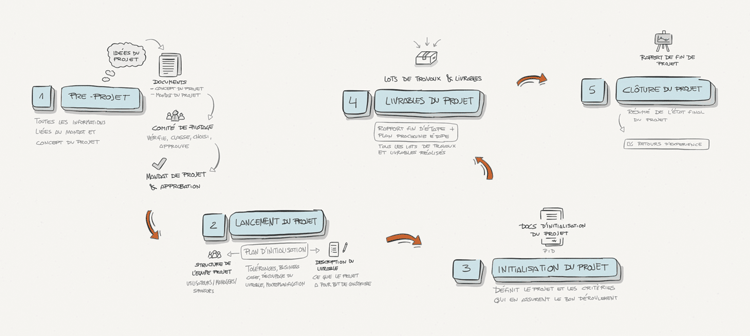 IDÉES DU
PROJET
DOCUMENTS
- CONCEPT DU PROJET
- MANDAT DU PROJET
1
PRE-PROJET
TOUTES LES INFORMATIONS
LIÉES AU MANDAT ET
CONCEPT DU PROJET
COMITÉ DE PILOTAGE
VÉRIFIE, CLASSE, CHOISI,
APPROUVE
MANDAT DE PROJET
& APPROBATION
2
LANCEMENT DU PROJET
STRUCTURE DE
L'ÉQUIPE PROJET
UTILISATEURS / MANAGERS /
SPONSORS
PLAN D'INITIALISATION
TOLÉRANCES, BUSINESS
CASE, DÉCOUPAGE DU
LIVRABLE,
DESCRIPTION DU
LIVRABLE
CE QUE LE PROJET
A POUR BUT DE
3
INITIALISATION DU PROJET
DOCS D'INITIALISATION
DU PROJET
P-I-D
DÉFINIT LE PROJET ET LES CRITÈRES
QUI EN ASSURENT LE BON DÉROULEMENT
LOTS DE TRAVAUX & LIVRABLES
4
LIVRABLES DU PROJET
RAPPORT FIN D'ÉTAPE +
PLAN PROCHAINE ÉTAPE
TOUS LES LOTS DE TRAVAUX
ET LIVRABLES RÉALISÉS
RAPPORT DE FIN DE
PROJET
5
CLÔTURE DU PROJET
RÉSUMÉ DE L'ÉTAT FINAL
DU PROJET
RETOURS D'EXPÉRIENCE